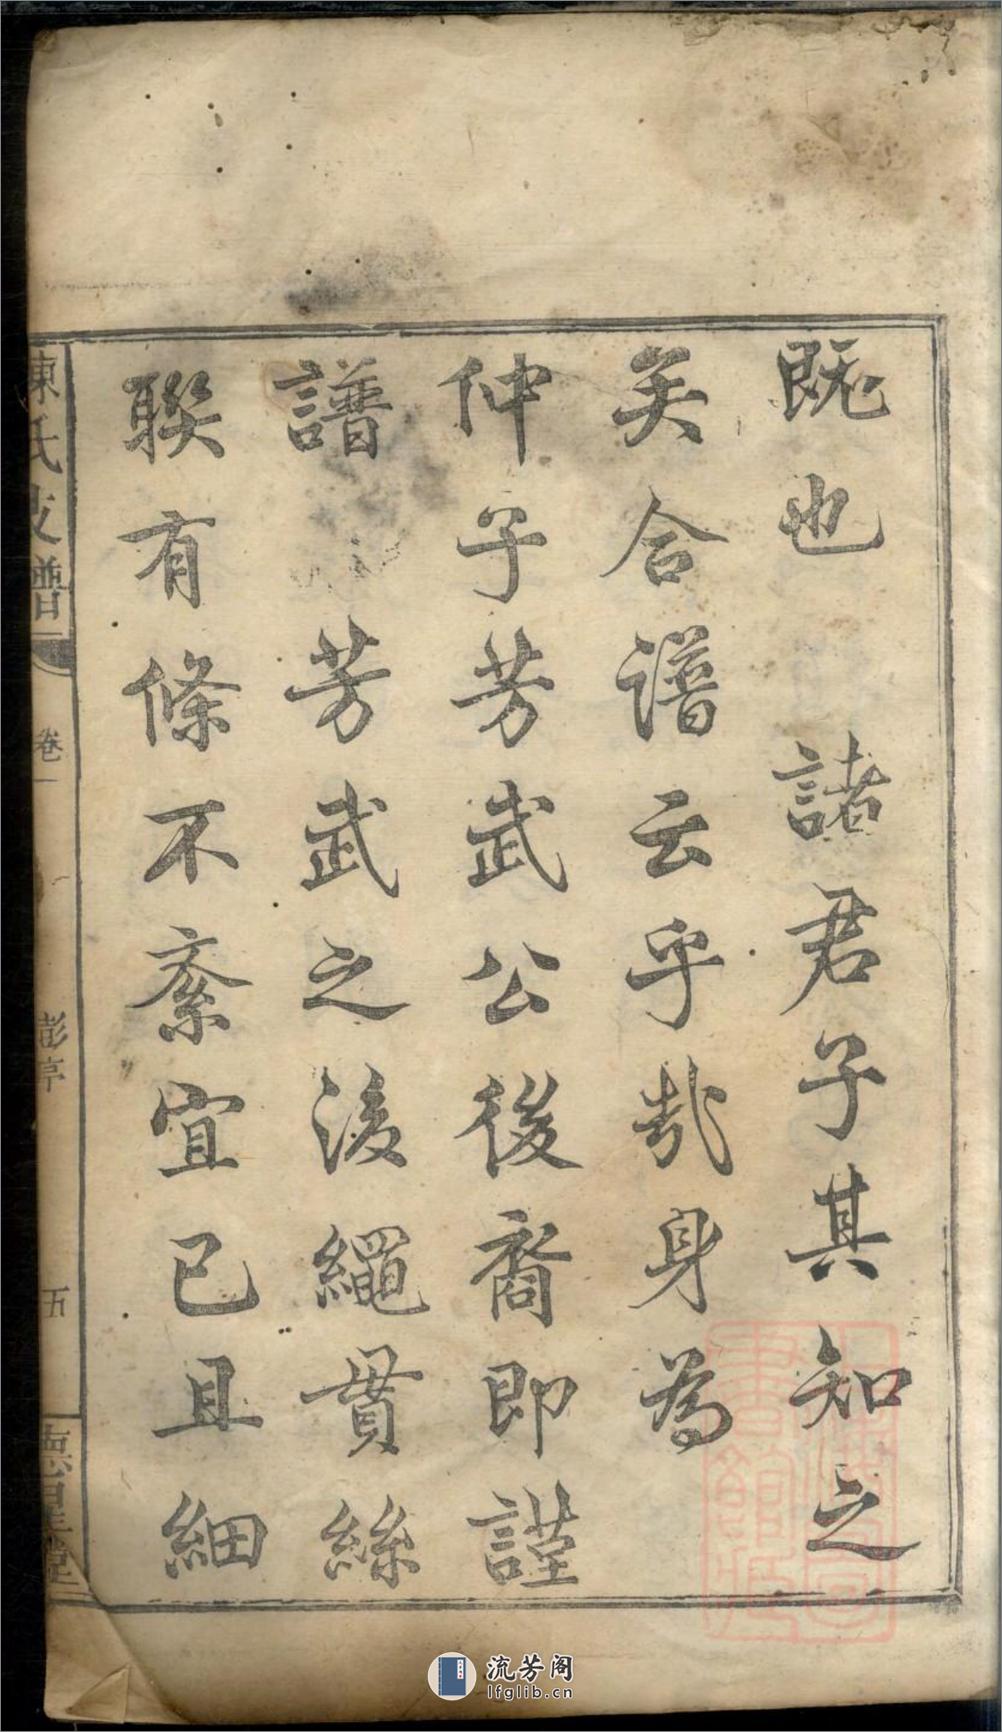 既也　諸君子其知之
矣合譜云乎哉身為
仲子芳武公後裔即謹
譜　芳武之後繩貫絲
聯有條不紊宜已且細
陳氏支譜
卷一
彭亭
五
德星堂
流芳阁
lfglib.cn